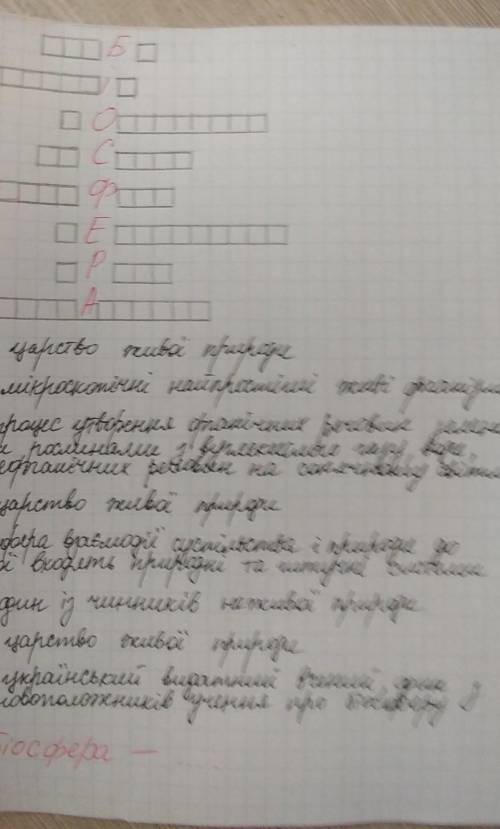 Б
І
О
С
Ф
Е
Р
А
царство живої природи
мікроскопічні найпростіші живі організми
процес утворення органічних речовин
рослинами з вуглекислого газу, води,
речовин на сонячному світлі
царство живої природи
сфера взаємодії суспільства і природи до
входять природні та штучні
один із чинників неживої природи
царство живої природи
український видатний вчений, один
учення про біосферу
біосфера —